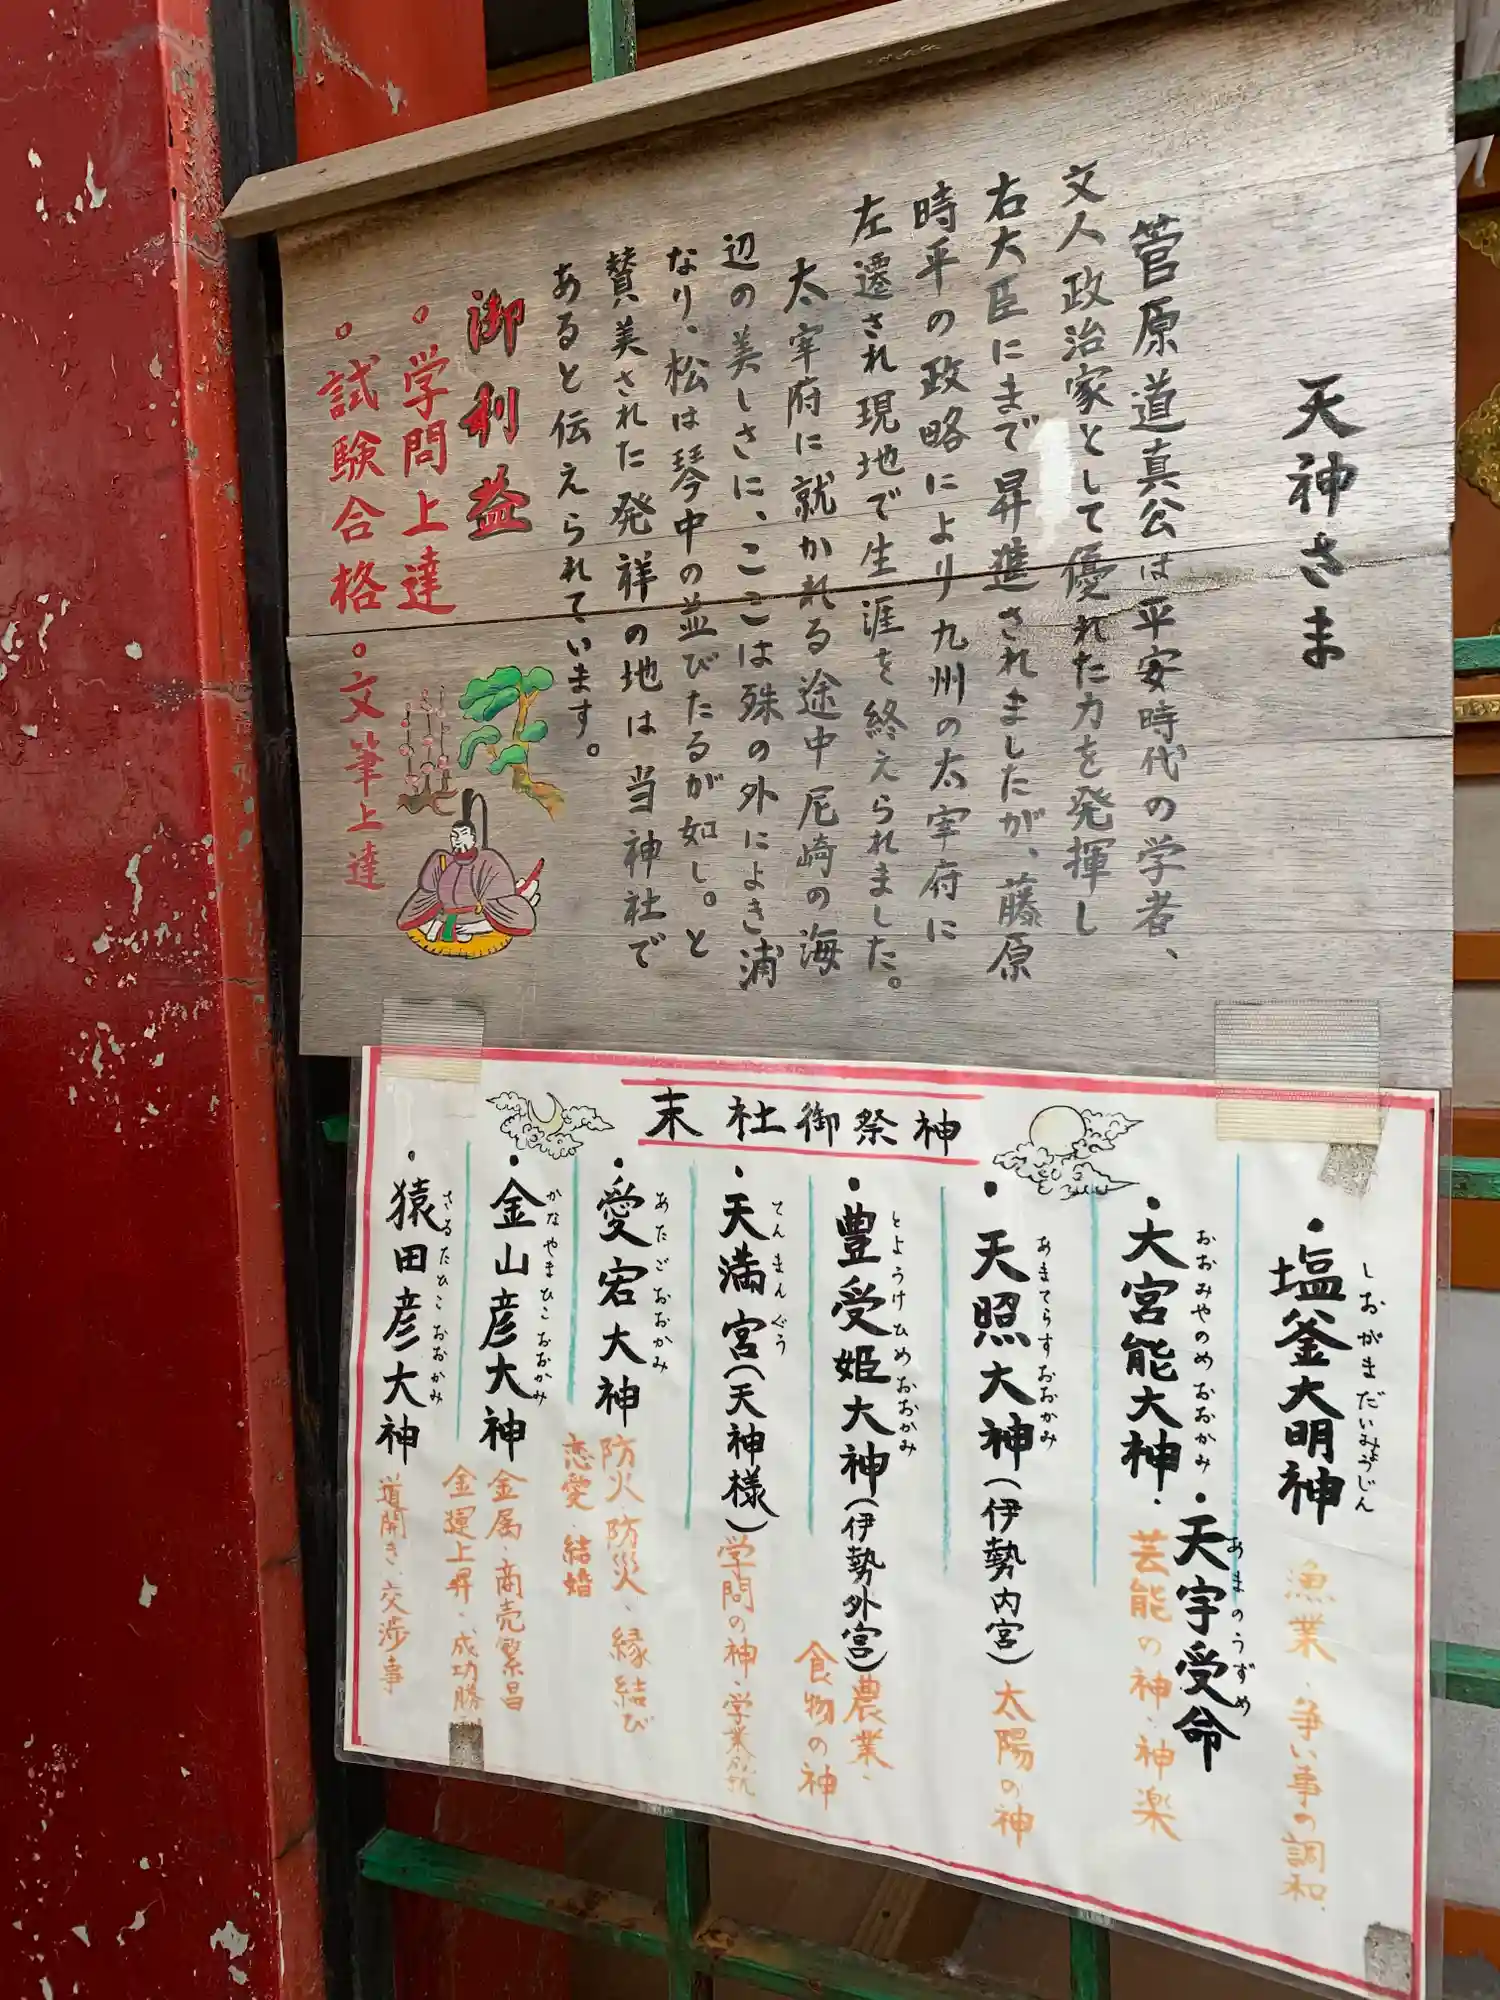 天神さま
菅原道真公は平安時代の学者、
文人政治家として優れた力を発揮し
右大臣にまで昇進されましたが、藤原
時平の政略により九州の太宰府に
左遷され現地で生涯を終えられました。
太宰府に就かれる途中尼崎の海
辺の美しさに、ここは殊の外によき浦
なり、松は琴中の並びたるが如し。と
賛美された発祥の地は当神社で
あると伝えられています。
御利益
。学問上達
。試験合格。文筆上達
末社御祭神
・塩釜大明神
しおがまだいみょうじん
漁業・争い事の調和
・大宮能大神・天宇受命
おおみやのめおおかみ
あまのうずめ
芸能の神・神楽
・天照大神(伊勢内宮)
あまてらすおおかみ
太陽の神
・豊受姫大神(伊勢外宮)
とようけひめおおかみ
農業・
食物の神
・天満宮(天神様)
てんまんぐう
学問の神・学業成就
・愛宕大神
あたごおおかみ
防火・防災・縁結び
恋愛・結婚
・金山彦大神
かなやまひこおおかみ
金属・商売繁昌
金運上昇・成功勝
・猿田彦大神
さるたひこおおかみ
道開き・交渉事